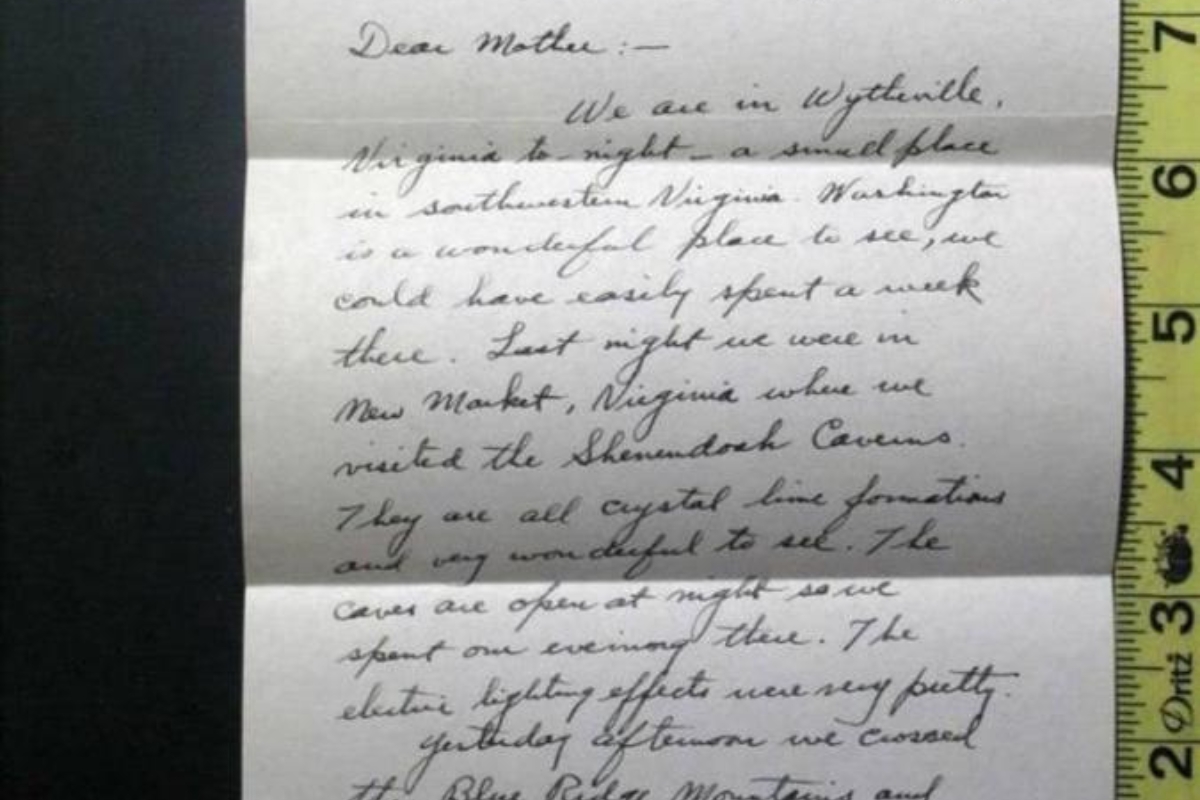 Dear Mother :—
We are in Wytheville,
Virginia to-night - a small place
in southwestern Virginia. Washington
is a wonderful place to see, we
could have easily spent a week
there. Last night we were in
New Market, Virginia where we
visited the Shenendoah Caverns.
They are all crystal lime formations
and very wonderful to see. The
caves are open at night so we
spent our evening there. The
electric lighting effects were very pretty.
Yesterday afternoon we crossed
the Blue Ridge Mountains and
7
6
5
4
3
Dritz
2